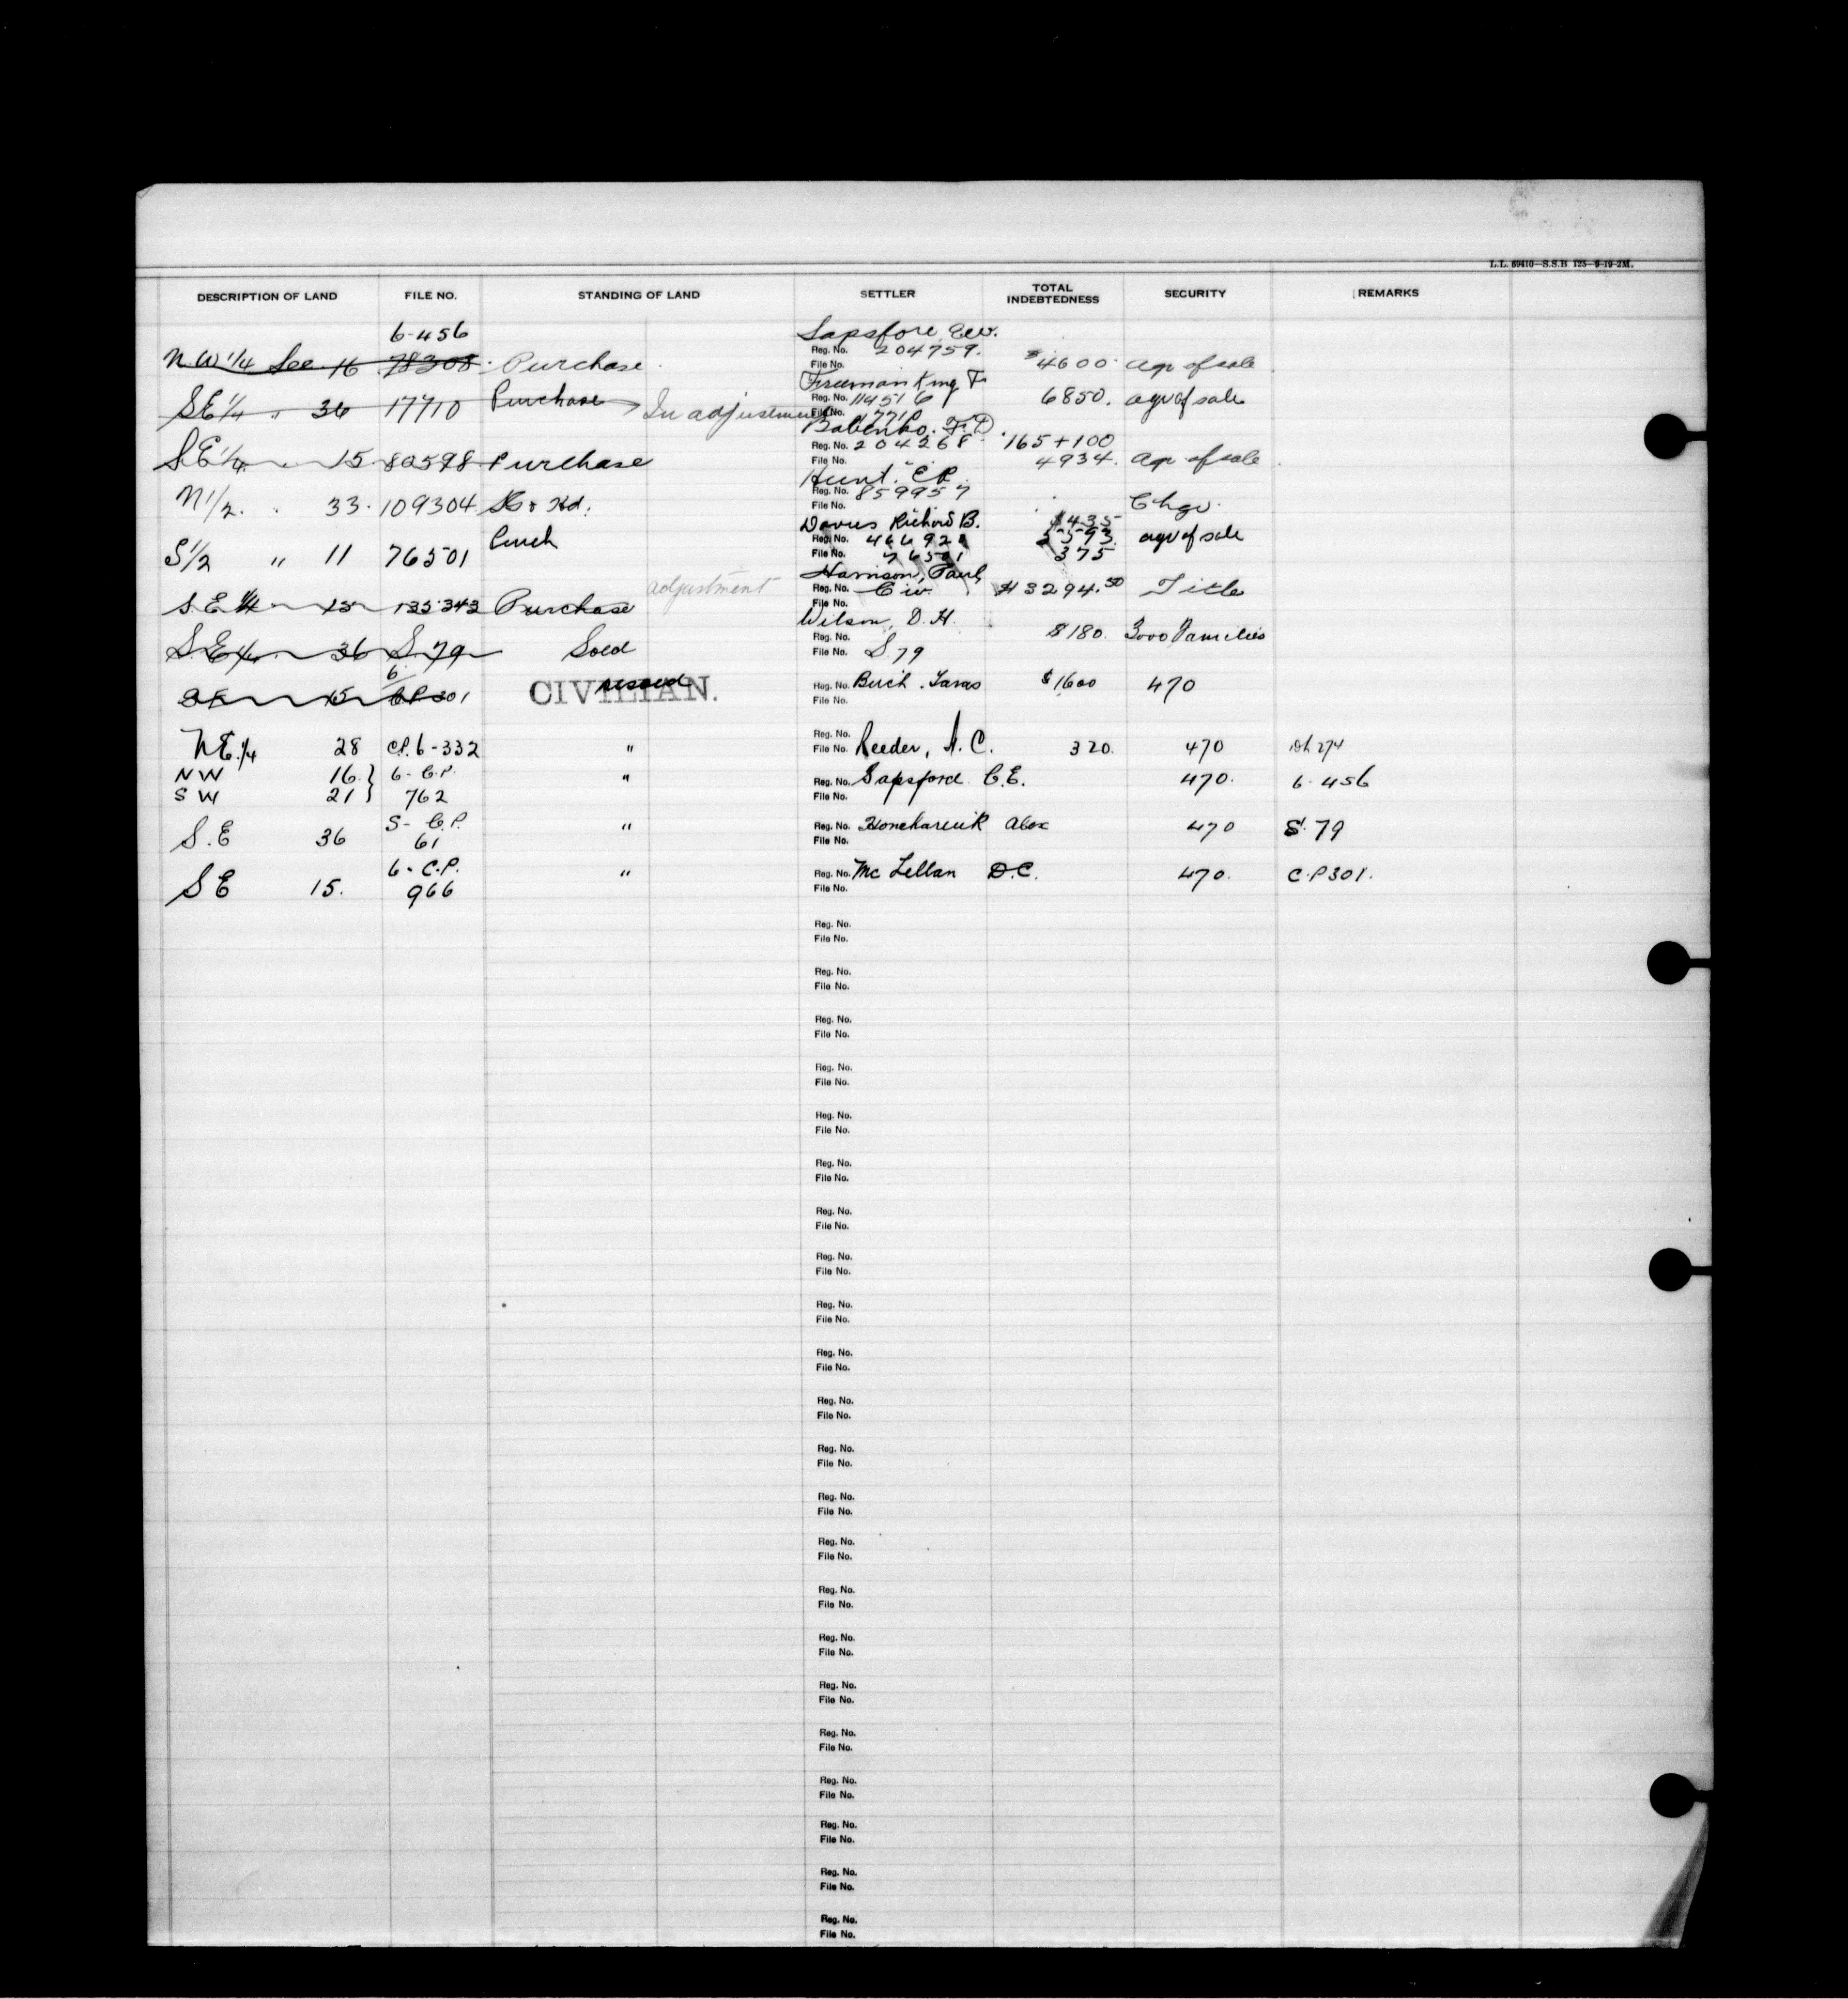 L.L. 69410—S.S.B. 125—9-19-2M.
DESCRIPTION OF LAND FILE NO. STANDING OF LAND SETTLER TOTAL INDEBTEDNESS SECURITY REMARKS
6-456 Sapsford,
N.W 1/4 Sec. 16 78308 Purchase Reg. No. 204759. $4600 agr of sale
File No.
Freeman King F.
S.E 1/4 " 36 17710 Purchase In adjustment Reg. No. 114516 6850. agr of sale
File No. 17710
Babenko. F.D.
Reg. No. 204268 165+100
S.E 1/4 " 15 80598 Purchase File No. 4934. agr of sale
Hunt. E.P.
N 1/2 " 33 109304 S. & Hd. Reg. No. 859957 Chge.
File No.
Davies Richard B. $435
S 1/2 " 11 76501 Purch Reg. No. 466920 5593. agr of sale
File No. 76501 375
Harrison, Paul
S.E 1/4 " 15 135343 Purchase adjustment Reg. No. Civ. $3294.50 Title
File No.
Wilson, D.H.
S.E 1/4 36 S.79 Sold Reg. No. $180. 3000 Families
File No. S.79
6
S.E 15 C.P. 301 CIVILIAN. resold Reg. No. Buich. Taras $1600 470
File No.
Reg. No.
N.E. 1/4 28 C.P. 6-332 " File No. Reeder, A.C. 320. 470 274
NW 16 } 6-C.P. " Reg. No. Sapsford C.E. 470. 6-456
SW 21 } 762 File No.
S.E 36 S-C.P. " Reg. No. Honcharuik Alex 470 S.79
61 File No.
S E 15. 6-C.P. " Reg. No. McLellan D.C. 470. C.P301.
966 File No.
Reg. No.
File No.
Reg. No.
File No.
Reg. No.
File No.
Reg. No.
File No.
Reg. No.
File No.
Reg. No.
File No.
Reg. No.
File No.
Reg. No.
File No.
Reg. No.
File No.
Reg. No.
File No.
Reg. No.
File No.
Reg. No.
File No.
Reg. No.
File No.
Reg. No.
File No.
Reg. No.
File No.
Reg. No.
File No.
Reg. No.
File No.
Reg. No.
File No.
Reg. No.
File No.
Reg. No.
File No.
Reg. No.
File No.
Reg. No.
File No.